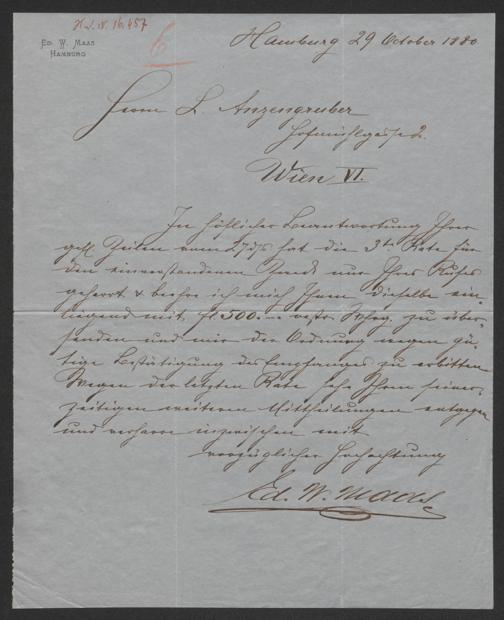 H.I.N. 16.457
6
ED. W. MAAS
HAMBURG
Hamburg 29 October 1880
Herrn L. Anzengruber
Hofmühlgasse 2.
Wien VI.
In höflicher Beantwortung Ihrer
gefl. Zeilen vom 27 ds hat die 3te Rate für
den einverstandenen Zweck nur Ihres Rufes
geharrt & beehre ich mich Ihnen dieselbe ein-
liegend mit fl 500.- östr. Whrg. zu über-
senden und mir der Ordnung wegen gü-
tige Bestätigung des Empfanges zu erbitten
Wegen der letzten Rate sehe Ihren seiner-
zeitigen weiteren Mittheilungen entgegen
und verharre inzwischen mit
vorzüglicher Hochachtung
Ed. W. Maas.